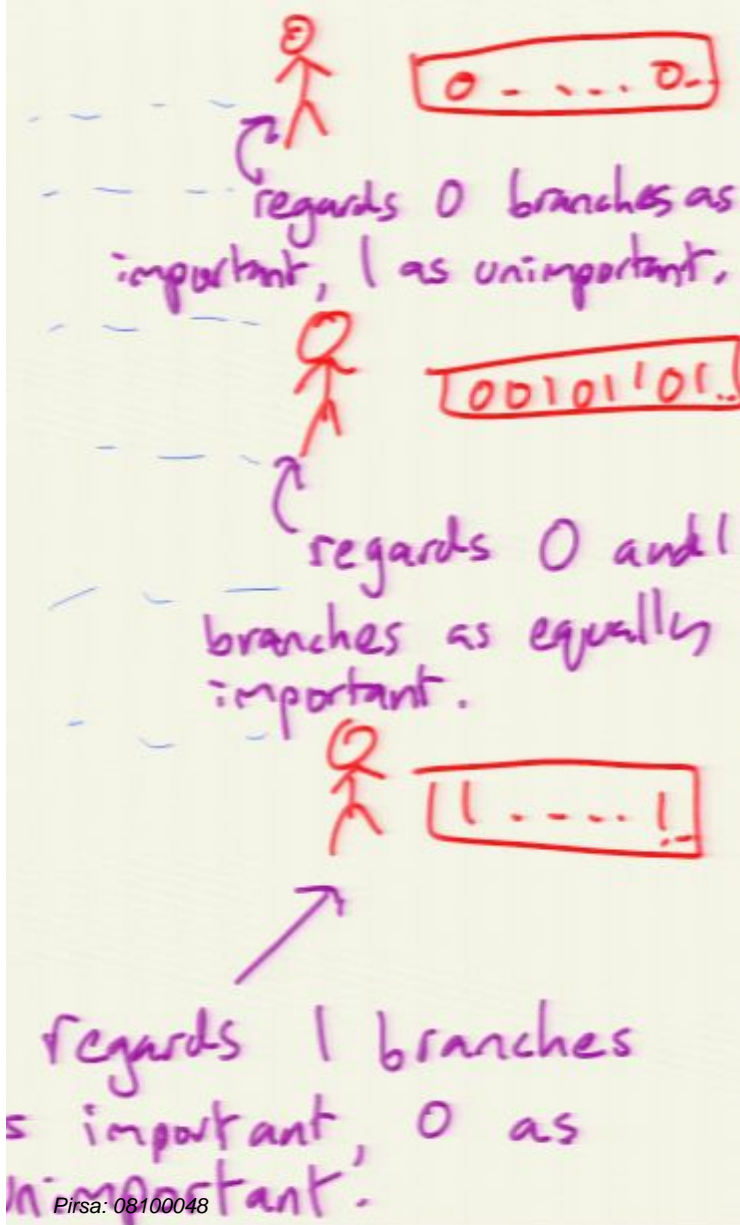 0 - -... 0..
regards 0 branches as
important, 1 as unimportant.
00101101..
regards 0 and 1
branches as equally
important.
11 - - - - 1..
regards 1 branches
s important, 0 as
nimportant.
Pirsa: 08100048